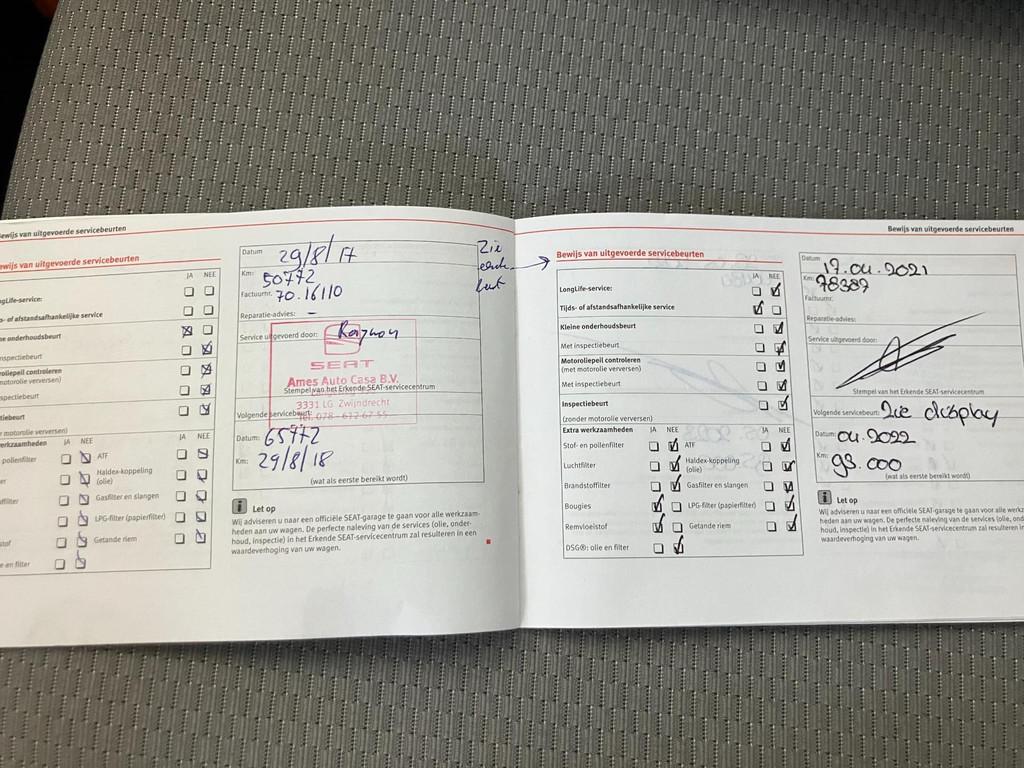 Bewijs van uitgevoerde servicebeurten
ewijs van uitgevoerde servicebeurten
JA NEE
ngLife-service:
s- of afstandsafhankelijke service
ne onderhoudsbeurt
nspectiebeurt
roliepeil controleren
motorolie verversen)
spectiebeurt
tiebeurt
r motorolie verversen)
werkzaamheden JA NEE JA NEE
pollenfilter ATF
er Haldex-koppeling
(olie)
offilter Gasfilter en slangen
LPG-filter (papierfilter)
stof Getande riem
e-en filter
Datum 29/8/17
Km: 50772
Factuurnr. 70.16110
Reparatie-advies: –
Service uitgevoerd door:
SEAT
Ames Auto Casa B.V.
Stempel van het Erkende SEAT-servicecentrum
3331 LG Zwijndrecht
Tel. 078 - 612 67 55
Volgende servicebeurt:
Datum: 65772
Km: 29/8/18
(wat als eerste bereikt wordt)
Let op
Wij adviseren u naar een officiële SEAT-garage te gaan voor alle werkzaam-
heden aan uw wagen. De perfecte naleving van de services (olie, onder-
houd, inspectie) in het Erkende SEAT-servicecentrum zal resulteren in een
waardeverhoging van uw wagen.
Zie
Bewijs van uitgevoerde servicebeurten
Bewijs van uitgevoerde servicebeurten
JA NEE
LongLife-service:
Tijds- of afstandsafhankelijke service
Kleine onderhoudsbeurt
Met inspectiebeurt
Motoroliepeil controleren
(met motorolie verversen)
Met inspectiebeurt
Inspectiebeurt
(zonder motorolie verversen)
Extra werkzaamheden JA NEE JA NEE
Stof- en pollenfilter ATF
Luchtfilter Haldex-koppeling
(olie)
Brandstoffilter Gasfilter en slangen
Bougies LPG-filter (papierfilter)
Remvloeistof Getande riem
DSG®: olie en filter
Datum: 17.04.2021
Km: 78387
Factuurnr.
Reparatie-advies:
Service uitgevoerd door:
Stempel van het Erkende SEAT-servicecentrum
Volgende servicebeurt: Zie display
Datum: 04.2022
Km: 93.000
(wat als eerste bereikt wordt)
Let op
Wij adviseren u naar een officiële SEAT-garage te gaan voor alle werkzaam-
heden aan uw wagen. De perfecte naleving van de services (olie, onder-
houd, inspectie) in het Erkende SEAT-servicecentrum zal resulteren in
waardeverhoging van uw wagen.